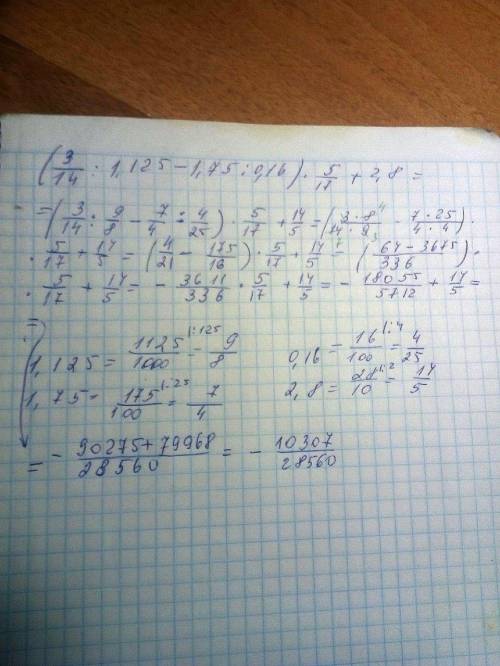 (3/14 : 1,125 - 1,75 : 0,16) · 5/17 + 2,8 =
= (3/14 : 9/8 - 7/4 : 4/25) · 5/17 + 14/5 = (3·8/14·9 - 7·25/4·4) ·
· 5/17 + 14/5 = (4/21 - 175/16) · 5/17 + 14/5 = (64-3675/336) ·
· 5/17 + 14/5 = - 3611/336 · 5/17 + 14/5 = - 18055/5712 + 14/5 =
1,125 = 1125/1000 = 9/8 0,16 = 16/100 = 4/25
1,75 = 175/100 = 7/4 2,8 = 28/10 = 14/5
= - 90275+79968/28560 = - 10307/28560